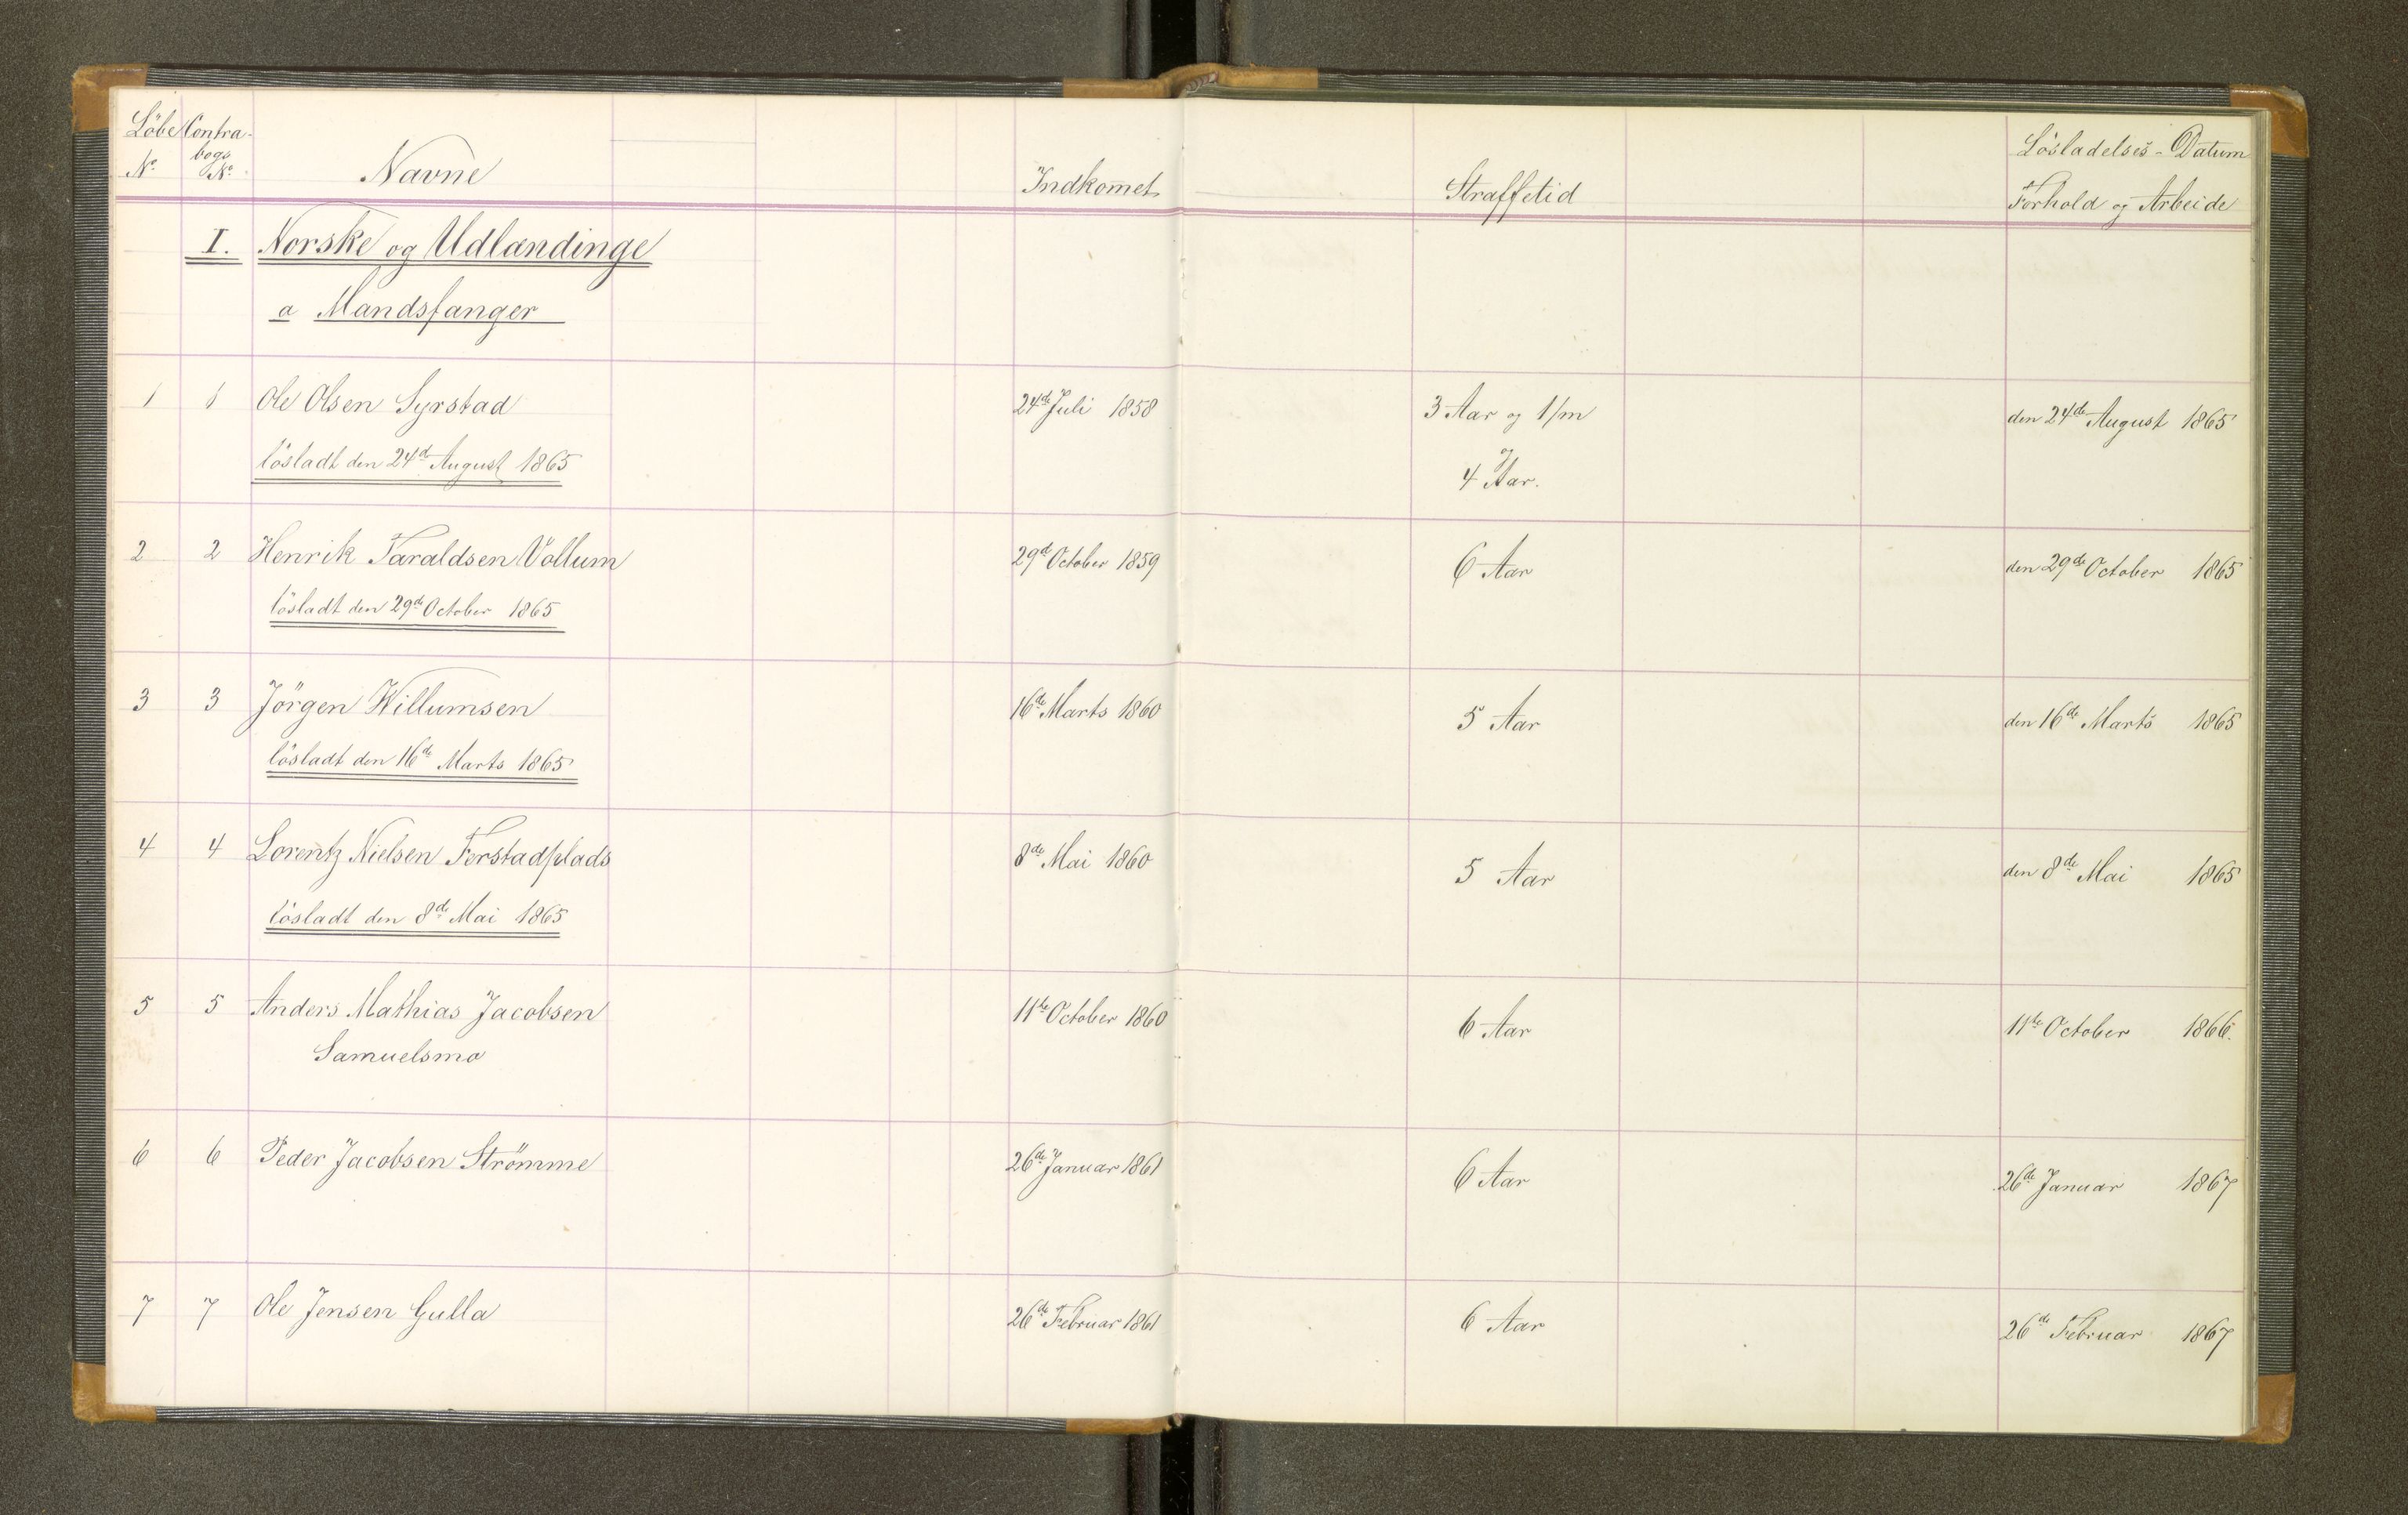 Löbe Contra-
bogs
No No
Navne
Indkomet
Straffetid
Lösladelses-Datum
Forhold og Arbeide
I. Norske og Udlændinge
a Mandsfanger
1 1 Ole Olsen Syrstad 24de Juli 1858 3 Aar og 1/m den 24de August 1865
lösladt den 24de August 1865 og
4 Aar.
2 2 Henrik Taraldsen Vollum 29de October 1859 6 Aar den 29de October 1865
lösladt den 29de October 1865
3 3 Jörgen Willumsen 16de Marts 1860 5 Aar den 16de Marts 1865
lösladt den 16de Marts 1865
4 4 Lorentz Nielsen Forstadplads 8de Mai 1860 5 Aar den 8de Mai 1865
lösladt den 8de Mai 1865
5 5 Anders Mathias Jacobsen 11te October 1860 6 Aar 11te October 1866.
Samuelsmo
6 6 Peder Jacobsen Strömme 26de Januar 1861 6 Aar 26de Januar 1867
7 7 Ole Jensen Gulla 26de Februar 1861 6 Aar 26de Februar 1867